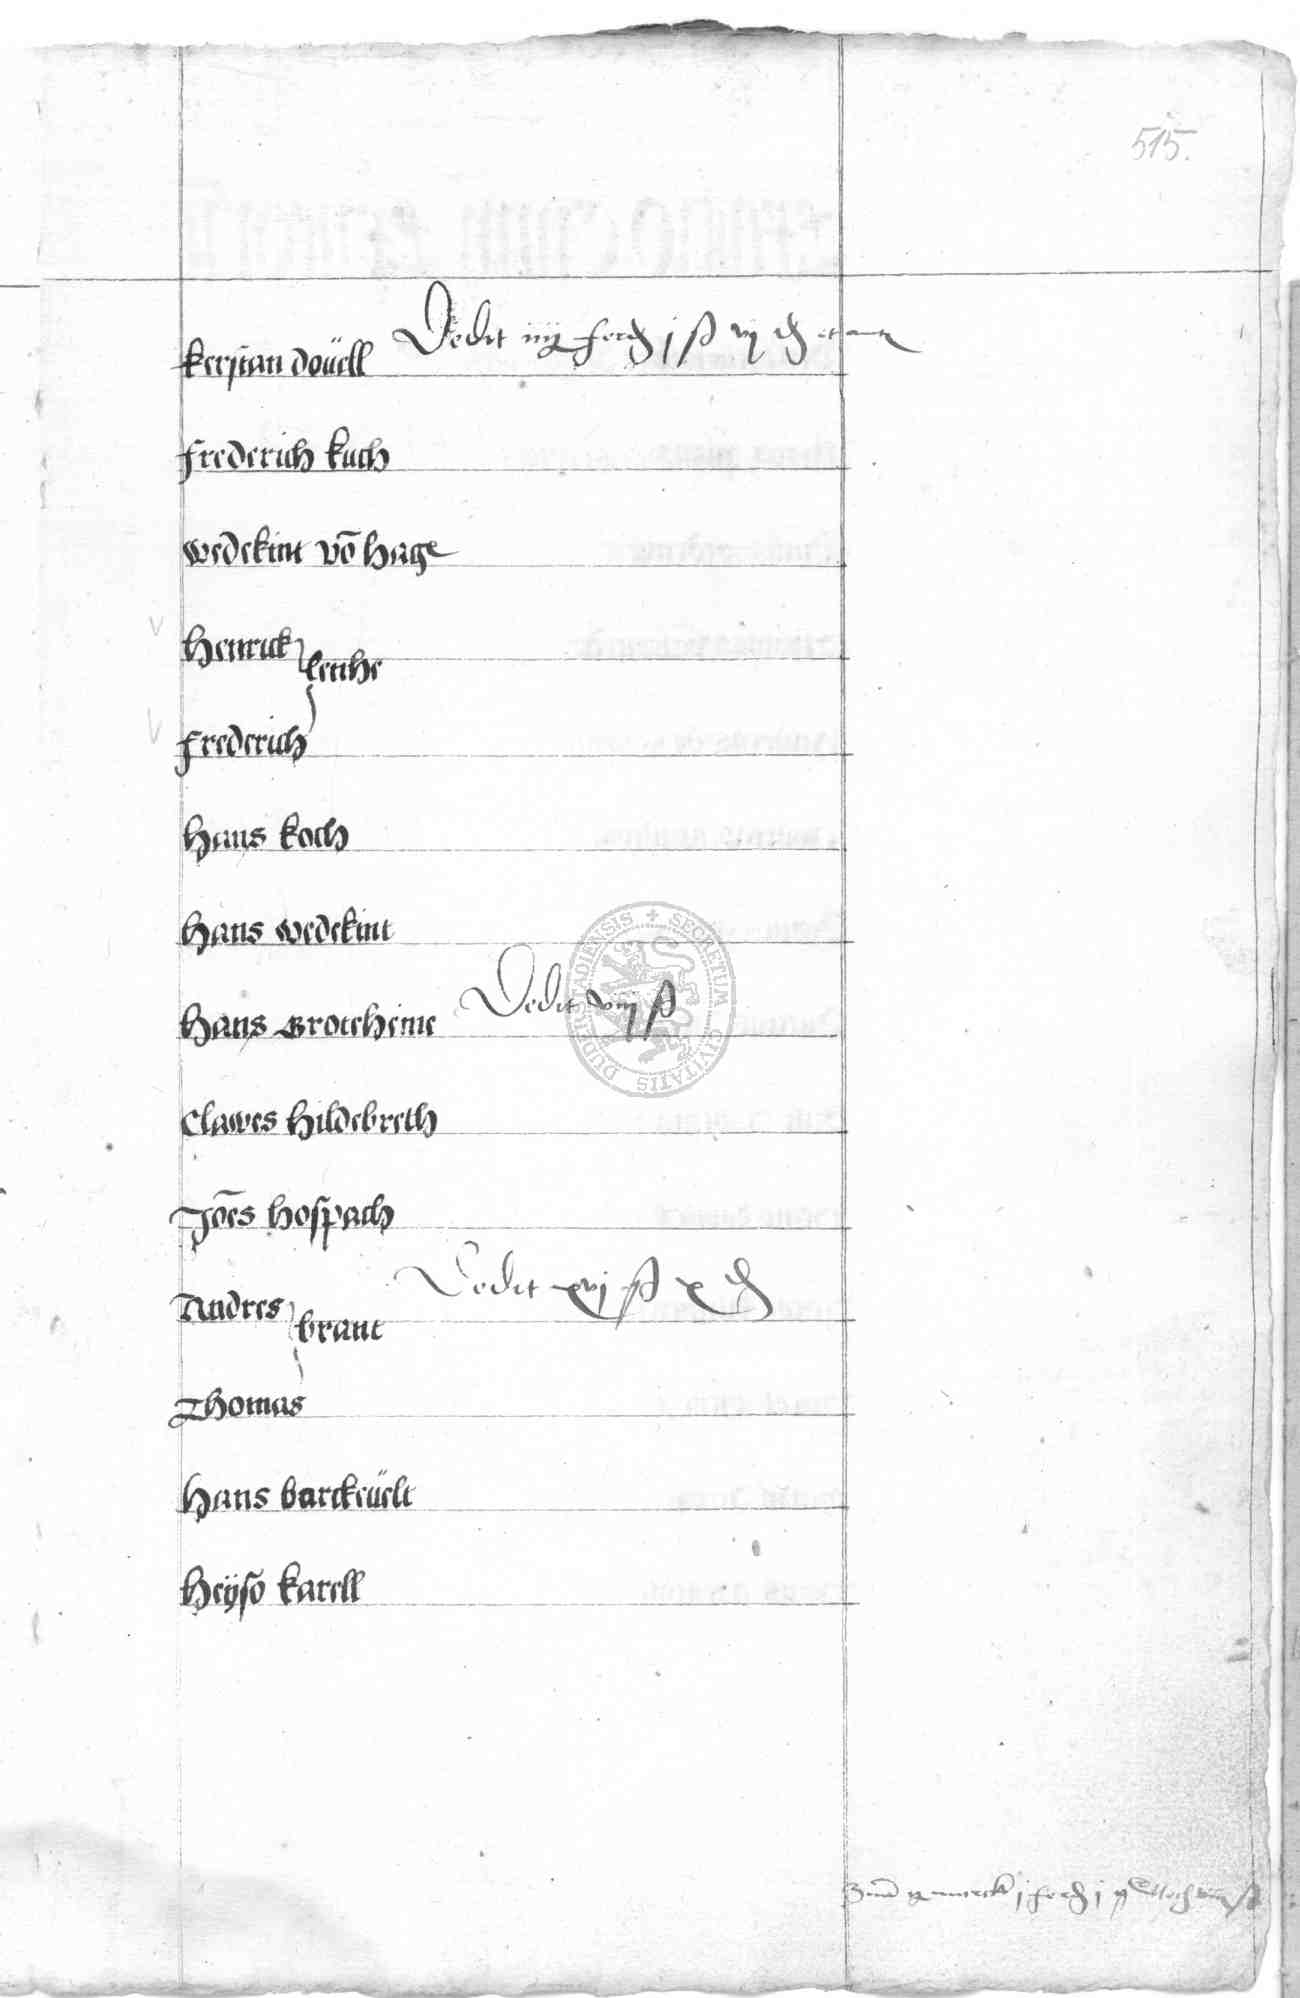 515.
kerstan doüell Dedit iiij ferd j ß vj d
frederich kuch
wedekint vō hage
Henrick
lenhe
frederich
Hans koch
Hans wedekint
Hans Groteheine Dedit viij ß
Clawes hildebreth
Joēs hospach
Andres Dedit xvj ß x d
brant
Thomas
Hans barckeuelt
Heyso karell
SECRETUM CIVITATIS DUDERSTADIENSIS